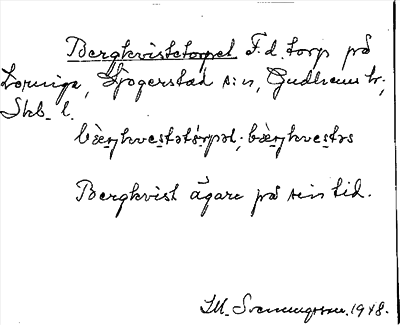 Bergkvistetorpet F. d. torp på
Lorunga, Sjogerstad s:n, Gudhems hr,
Skb. l.
bæ̀rjkvestətɔ́rpət; bæ̀rjkvestəs
Bergkvist ägare på sin tid.
IM. Svenungsson. 1948.